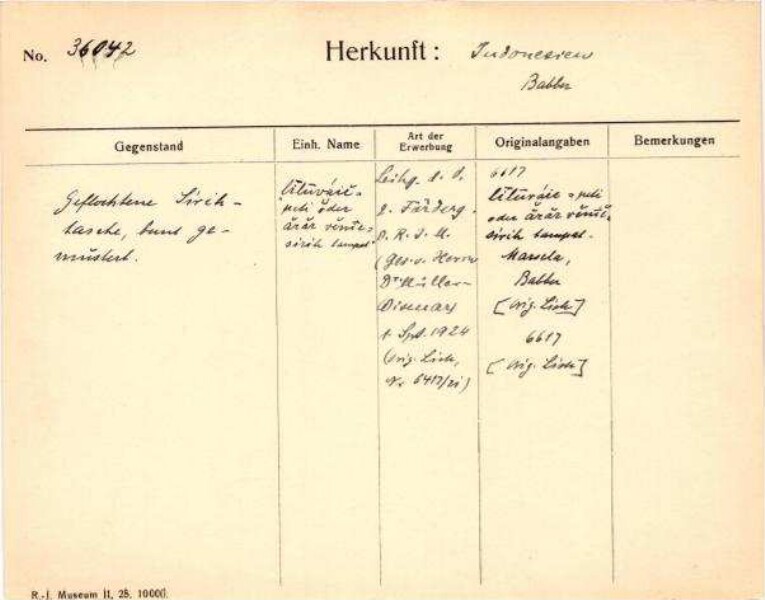 No. 36042
Herkunft: Indonesien
Babber
Gegenstand
Einh. Name
Art der Erwerbung
Originalangaben
Bemerkungen
Geflochtene Sirih-
tasche, bunt ge-
mustert.
lĭtŭváie-
peti oder
ărăr
sirih tampat
Leihg. d. d.
z. Förderg.
d. R. J. M.
(Ges. v. Herrn
Dr. Müller-
Wismar)
1. Spt. 1924
(Orig. Liste,
6617
lĭtŭváie-peti
oder ărăr
sirih tampat-
Marsela,
Babber
[Orig. Liste]
6617
[Orig. Liste]
R.-J. Museum II, 28. 10000.